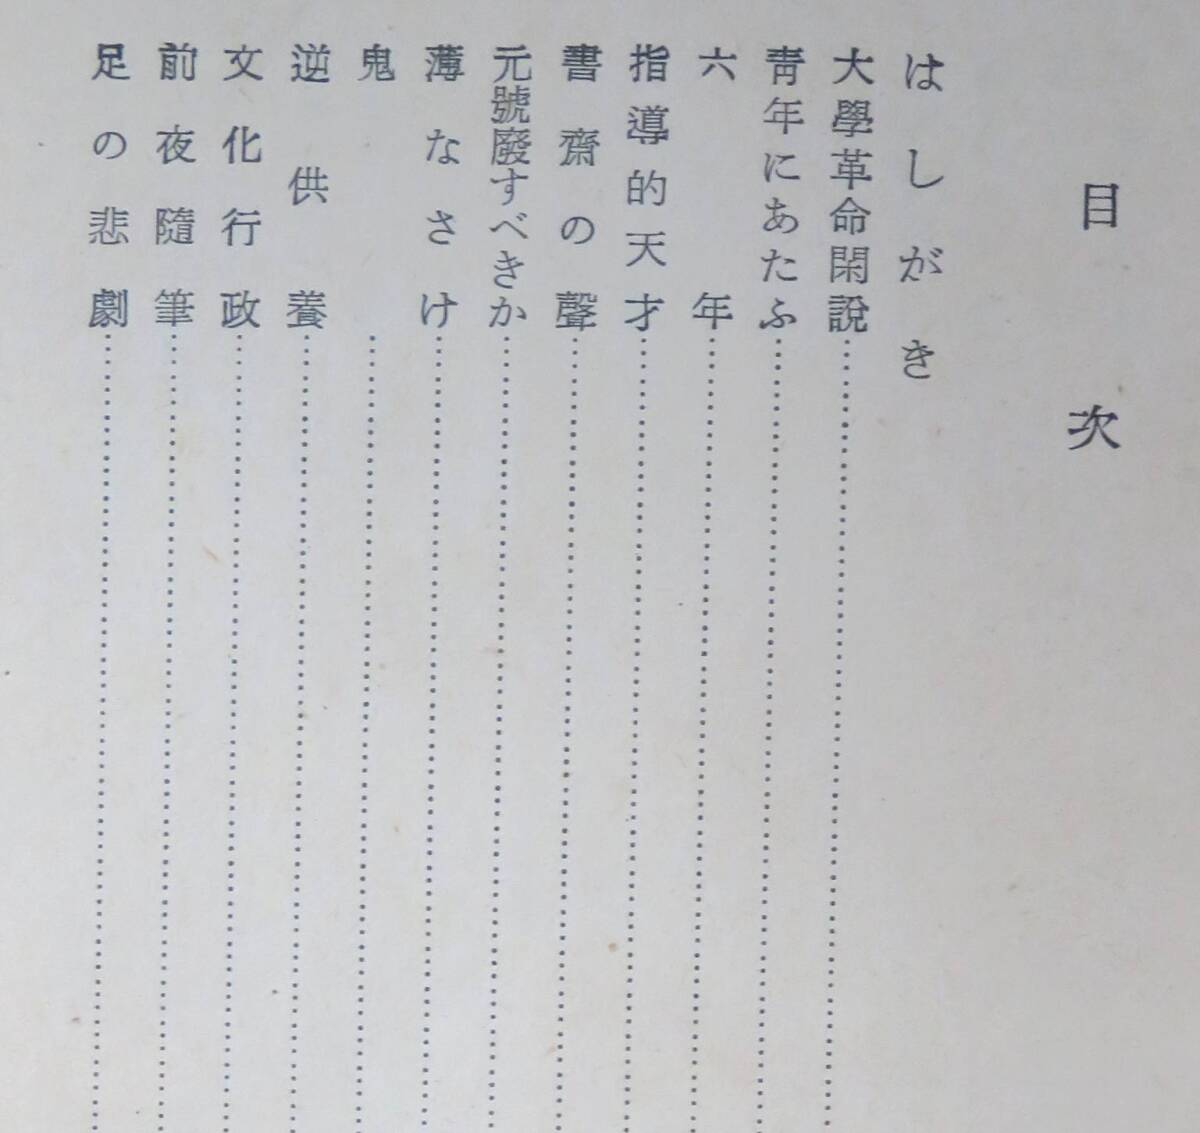 目次
はしがき
大學革命閑說
靑年にあたふ
六年
指導的天才
書齋の聲
元號廢すべきか
薄なさけ
鬼
逆供養
文化行政
前夜隨筆
足の悲劇